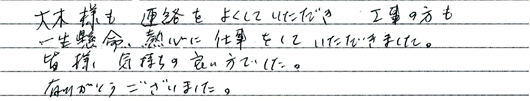 大木様も 連絡を よくして いただき 工事の方も
一生懸命、熱心に 仕事をして いただきました。
皆様、気持ちの良い方でした。
有りがとうございました。